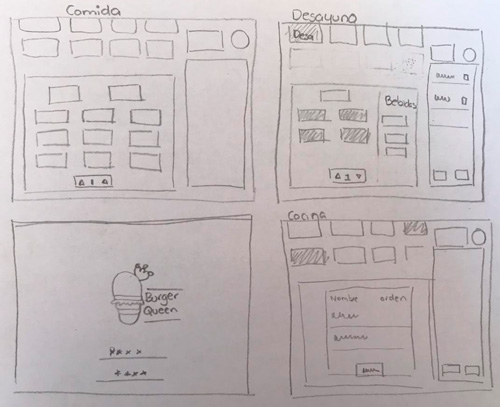 Comida
Desayuno
Desa
Bebidas
1
1
Burger
Queen
****
****
Cocina
Nombe orden